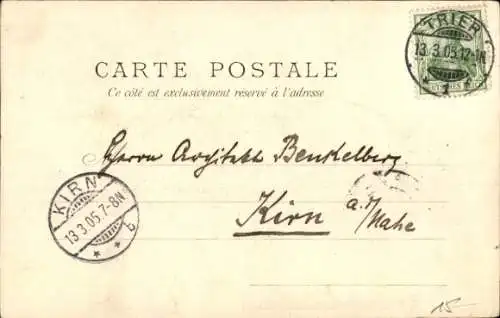 TRIER
13.3.05.12-1N
CARTE POSTALE
Ce côté est exclusivement réservé à l'adresse
Herrn Architekt Benkelberg
Kirn a. d. Nahe
KIRN
13.3.05.7-8N
b
15